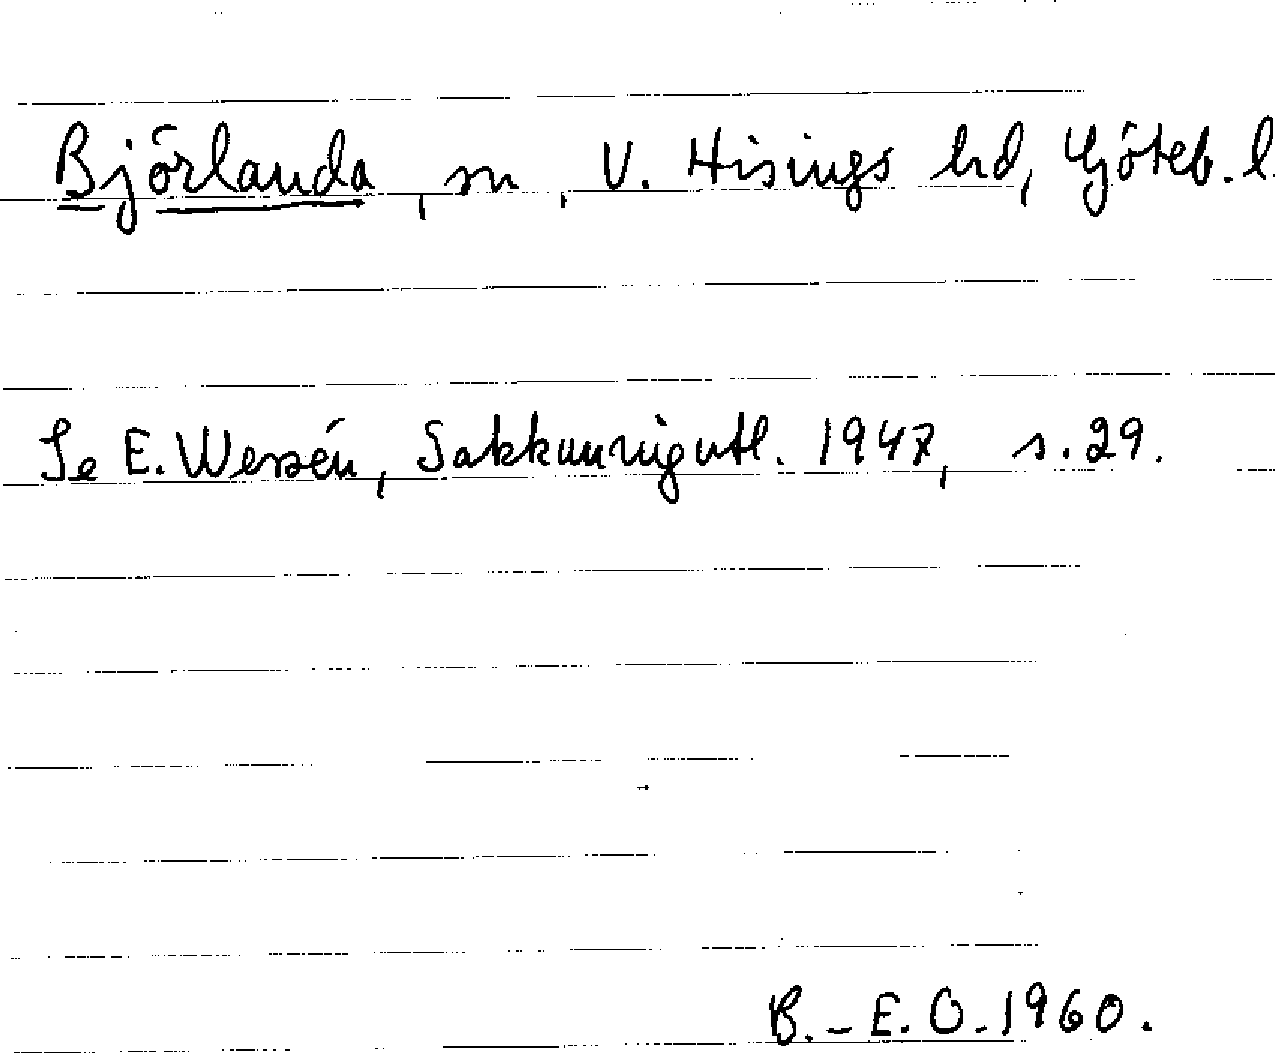 Björlanda, sn, V. Hisings hd, Göteb. l.
Se E. Wessén, Sakkunnigutl. 1947, s. 29.
B.-E. O. 1960.